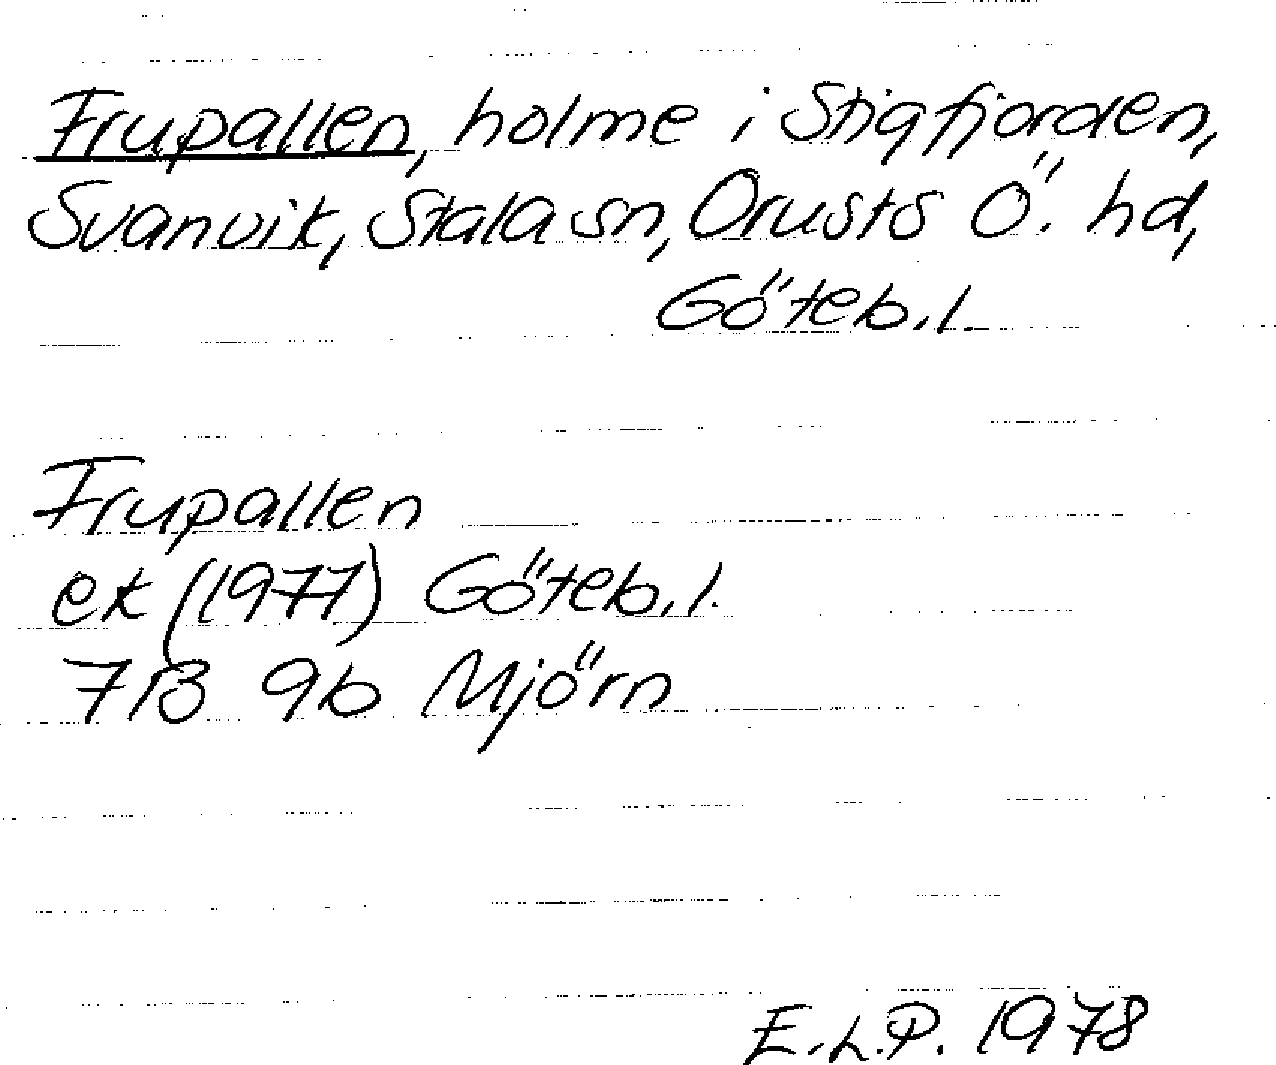 Frupallen, holme i Stigfjorden,
Svanvik, Stala sn, Orusts Ö. hd,
Göteb.l.
Frupallen
ek (1977) Göteb.l.
7B 9b Mjörn
E.L.P. 1978